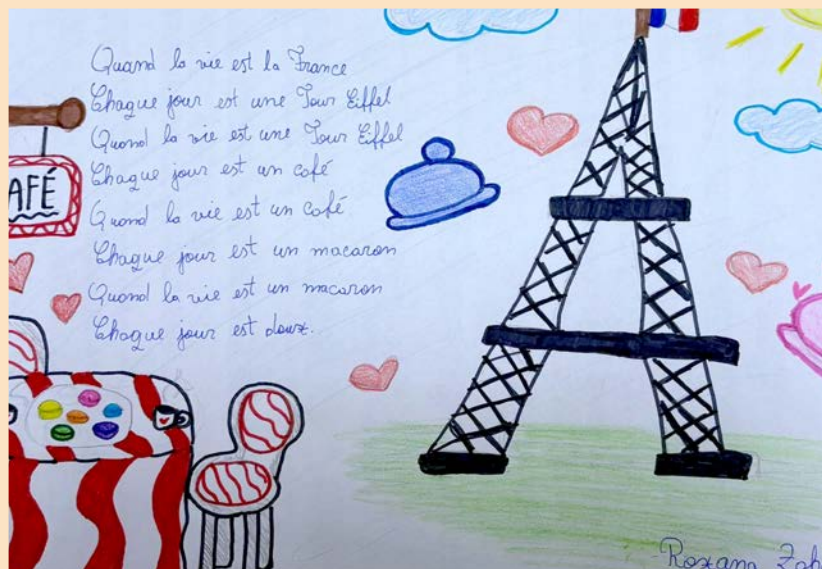 Quand la vie est la France
Chaque jour est une Tour Eiffel
Quand la vie est une Tour Eiffel
Chaque jour est un café
Quand la vie est un café
Chaque jour est un macaron
Quand la vie est un macaron
Chaque jour est douz.
AFÉ